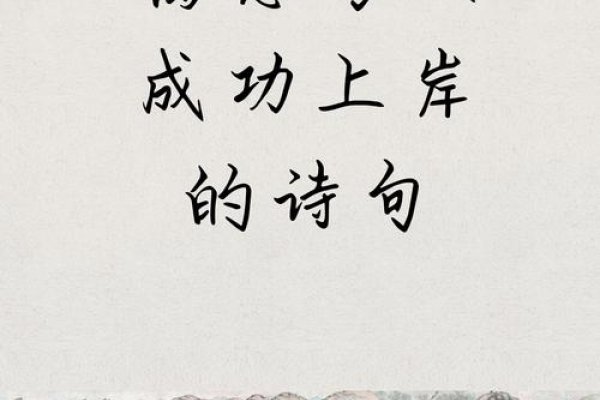 成功上岸
的诗句